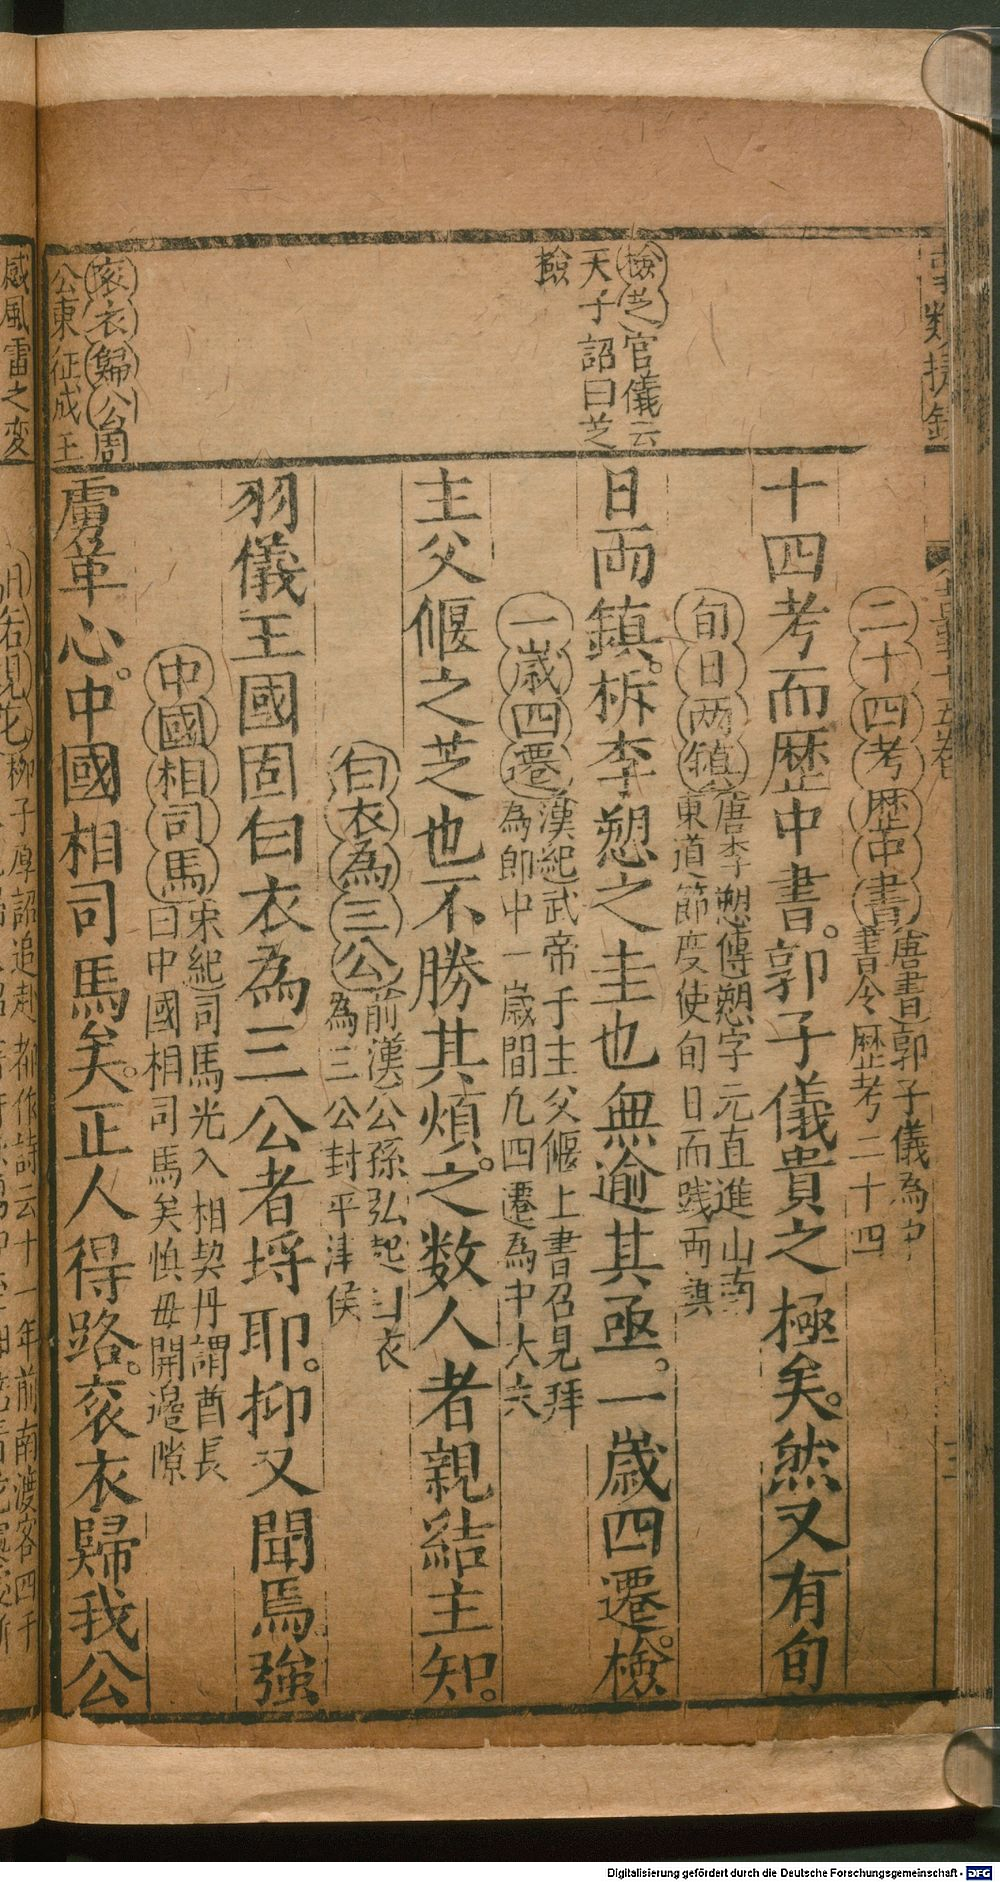 二十四考歷中書唐書郭子儀為中
書令歷考二十四
十四考而歷中書。郭子儀貴之極矣。然又有旬
旬日两鎮唐李愬傳愬字元直進山南
東道節度使旬日而践两鎮
日両鎮。析李愬之圭也無逾其亟。一歳四遷。檢
檢芝官儀云
天子詔曰芝
檢
一歳四遷漢紀武帝于主父偃上書召見拜
為郎中一歳間凢四遷為中大夫
主父偃之芝也不勝其煩。之数人者親結主知。
白衣為三公前漢公孫弘起白衣
為三公封平津侯
羽儀王國固白衣為三公者埒耶。抑又聞焉強
中國相司馬宋紀司馬光入相契丹謂酋長
曰中國相司馬矣慎毋開邉隙
虜革心。中國相司馬矣。正人得路。衮衣歸我公
衮衣歸公周
公東征成王
感風雷之変
柳子厚詔追赴都作詩云十一年前南渡客四千
Digitalisierung gefördert durch die Deutsche Forschungsgemeinschaft - DFG